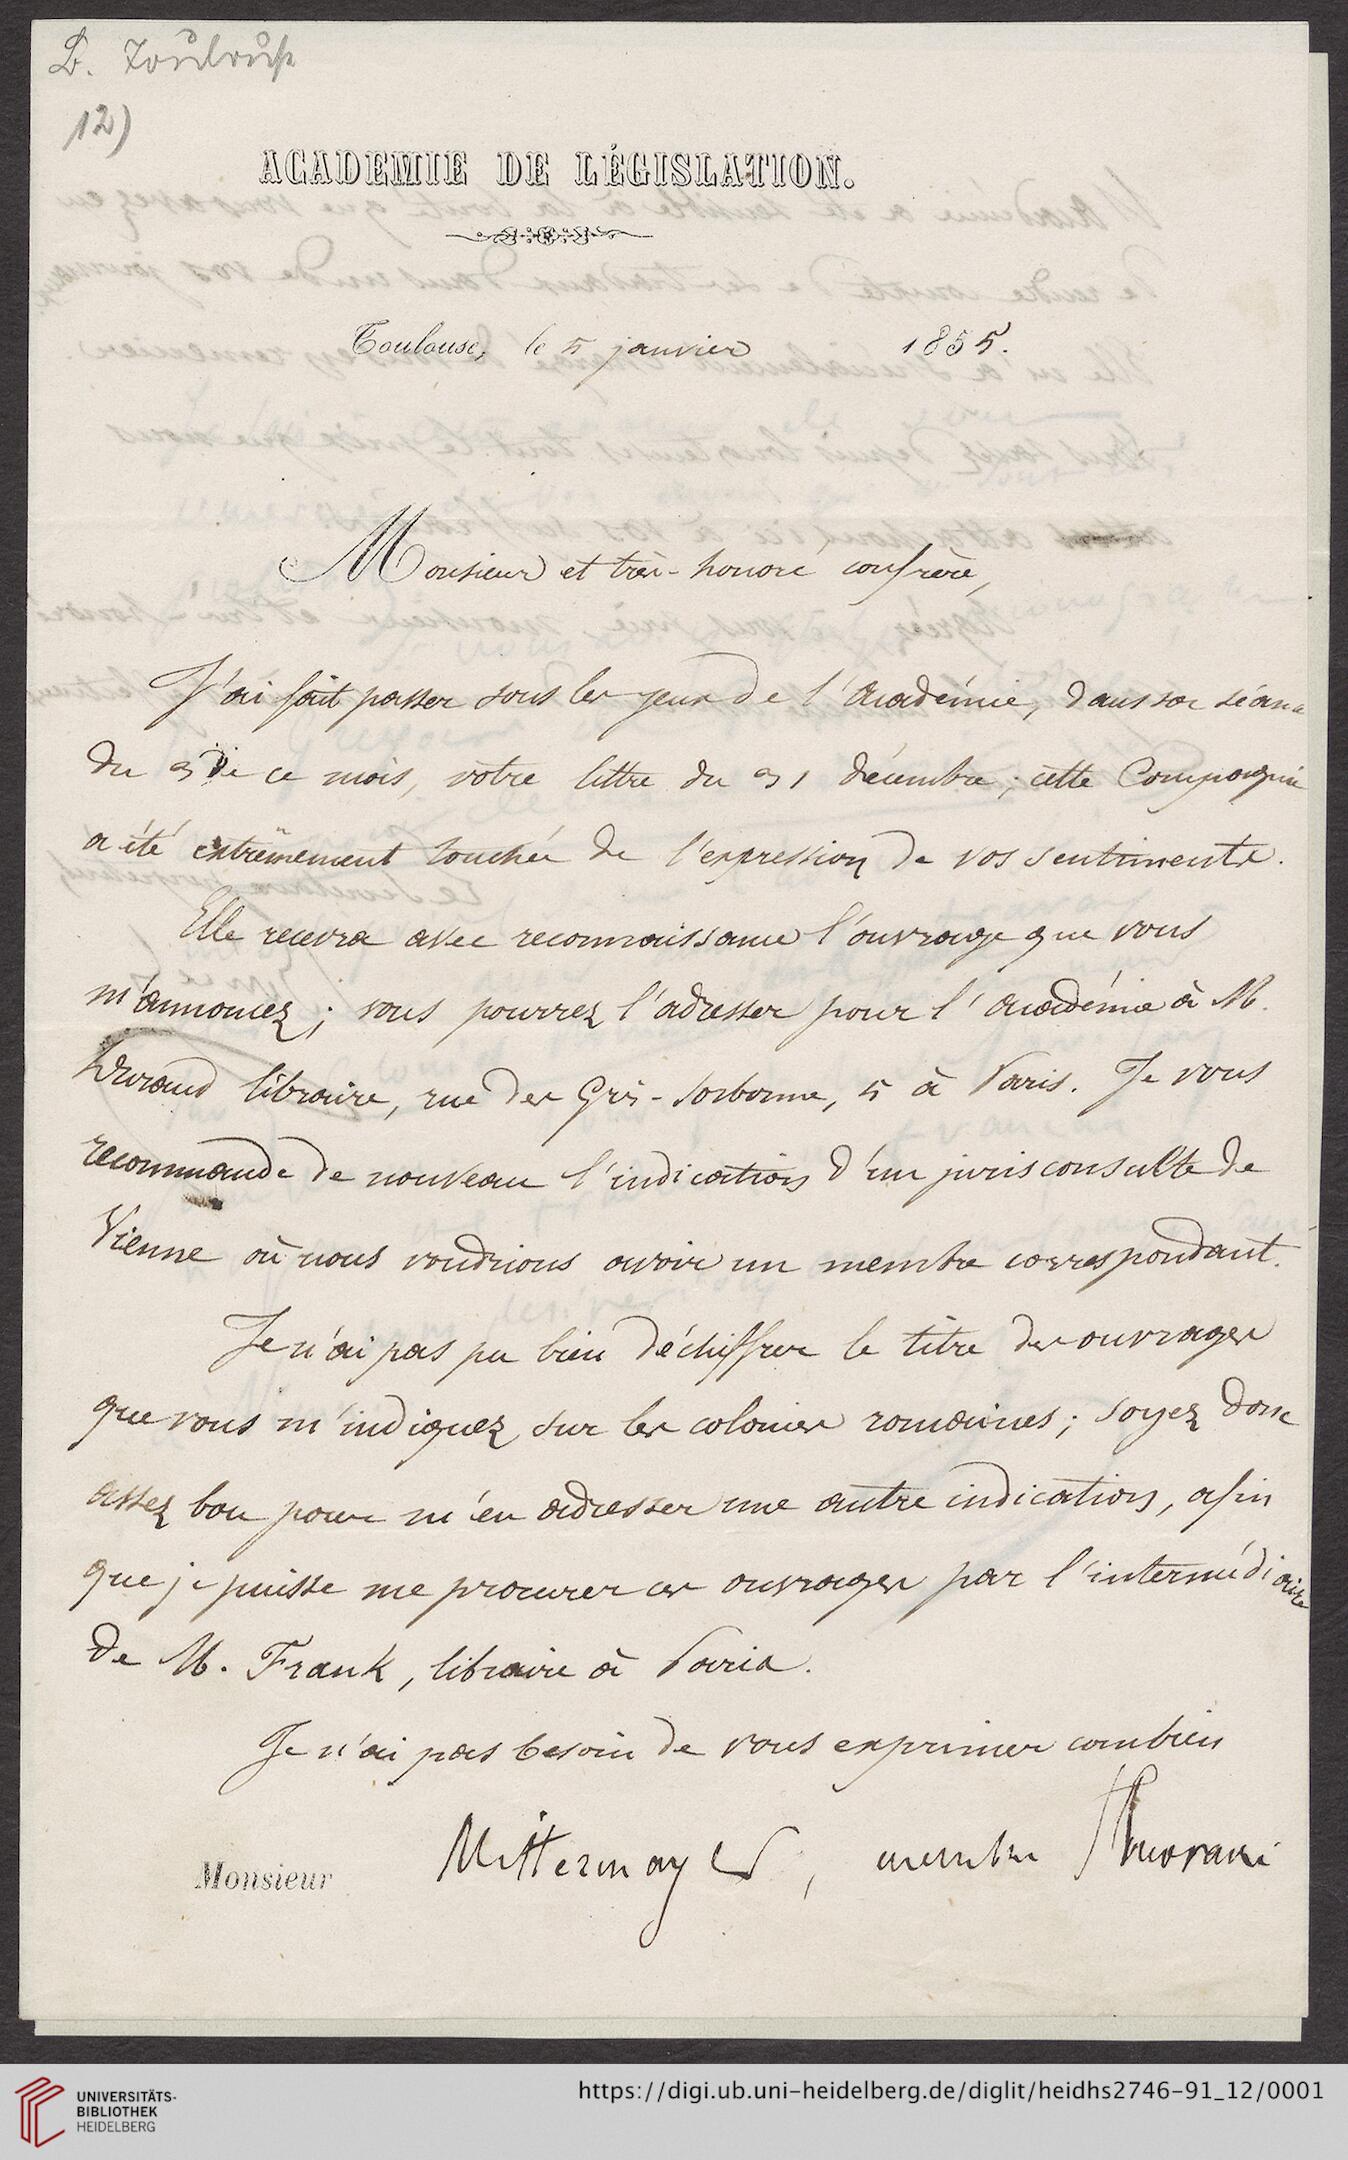 12)
ACADEMIE DE LÉGISLATION.
Toulouse, le 5 janvier 1855.
Monsieur et très-honoré confrère,
J'ai fait passer sous les yeux de l'Académie, dans sa séance
du 3 de ce mois, votre lettre du 31 décembre; cette Compagnie
a été extrêmement touchée de l'expression de vos sentiments.
Elle recevra avec reconnaissance l'ouvrage que vous
m'annoncez; vous pourrez l'adresser pour l'académie à M.
Durand libraire, rue des Grès-Sorbonne, 5 à Paris. Je vous
recommande de nouveau l'indication d'un jurisconsulte de
Vienne où nous voudrions avoir un membre correspondant.
Je n'ai pas pu bien déchiffrer le titre des ouvrages
que vous m'indiquez sur les colonies romaines; soyez donc
assez bon pour m'en adresser une autre indication, afin
que je puisse me procurer ces ouvrages par l'intermédiaire
de M. Frank, libraire à Paris.
Je n'ai pas besoin de vous exprimer combien
Monsieur Mittermayer, membre
UNIVERSITÄTS-
BIBLIOTHEK
HEIDELBERG
https://digi.ub.uni-heidelberg.de/diglit/heidhs2746-91_12/0001